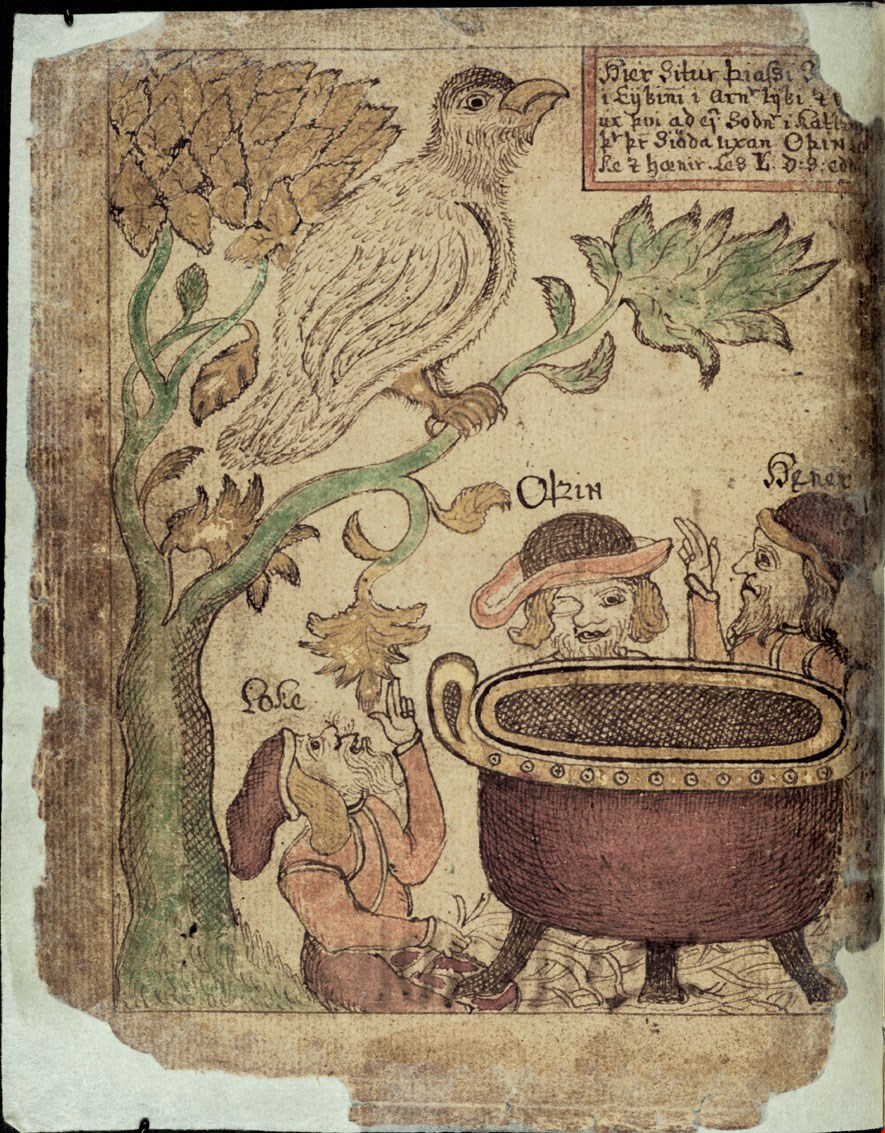 Hier Situr Þiassi
i Eÿkinni i Arn lÿki
ux þvi ad ej Sodn i katl
þr Sióda uxan Oþin
ke hænir. les L. D: S: edd
Oþin
Hener
Loke